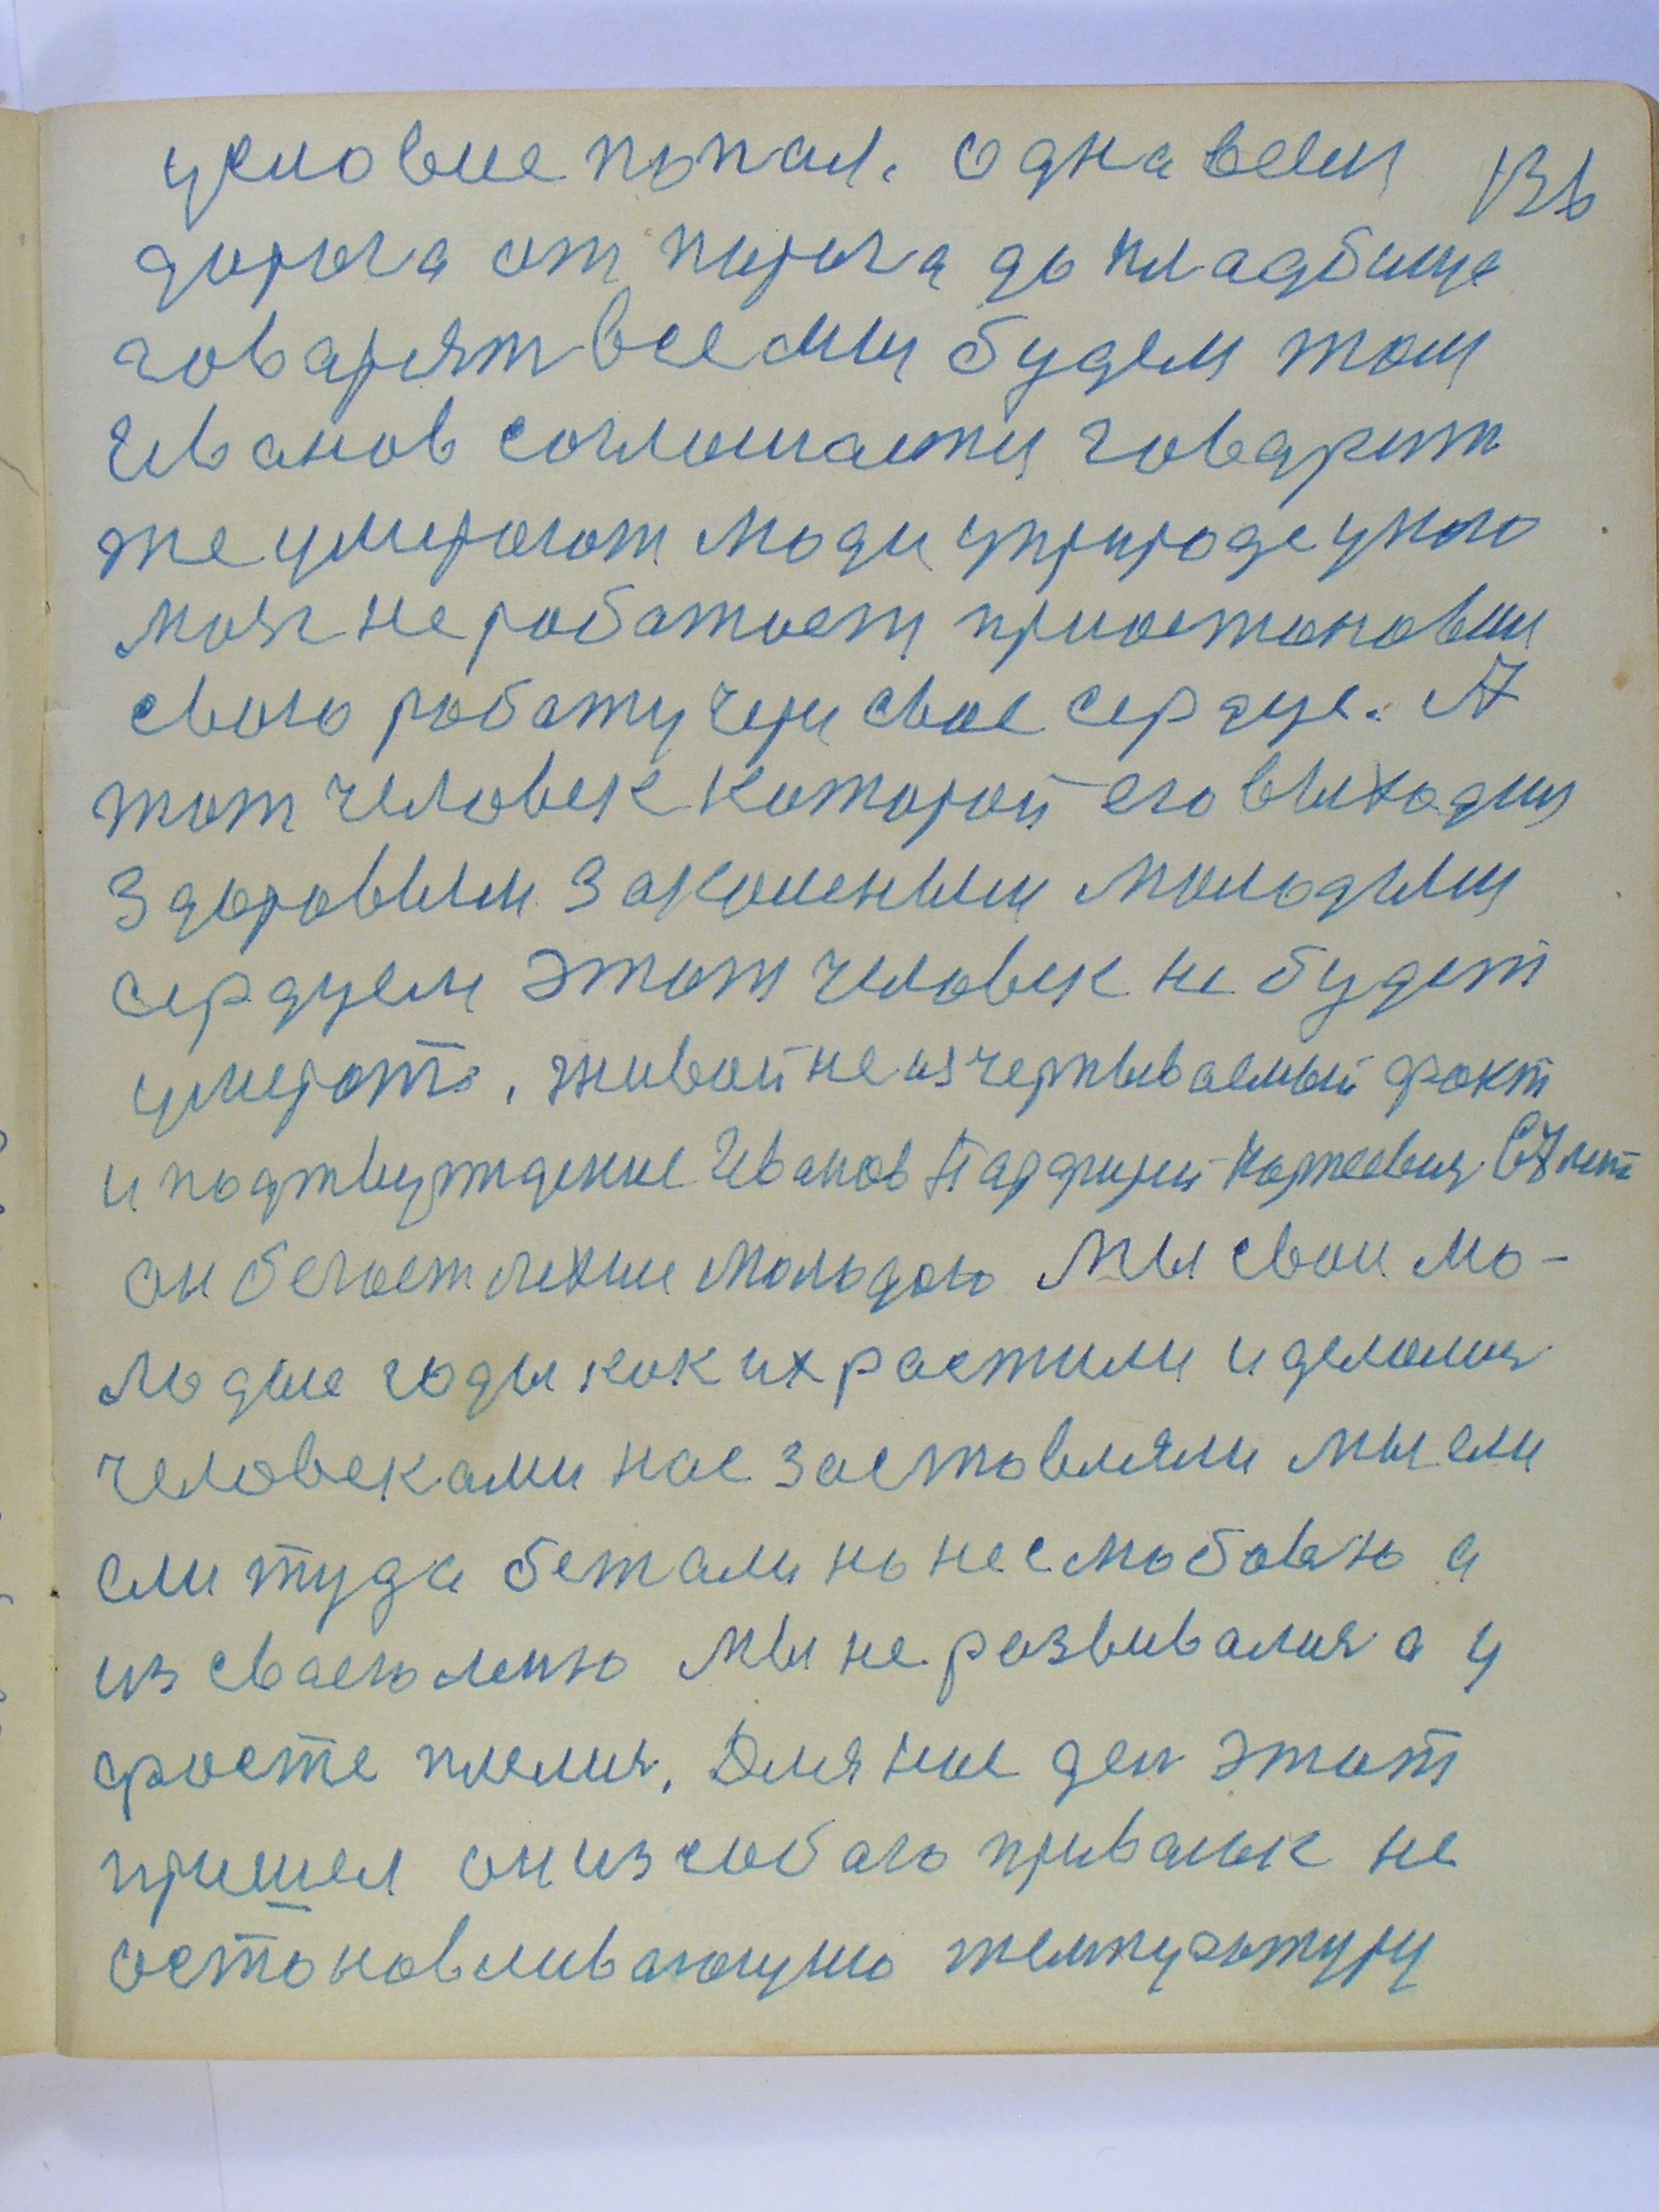 условие попал. одна всем 136
дорога от порога до кладбища
говарят все мы будем там
Иванов соглошается говарит
же умирают люди уприроде укого
мозг не работает приостоновил
свою работу через свое сердце. А
тот человек которой его выходил
здоровым закаленым молодым
сердцем этот человек не будет
умерать. живой не изчерпываемый факт
и подтверждение Иванов Парфирий Корнеевич 67 лет
он бегает лехше молодого Мы свои мо-
лодые годы как их растили и делолися
человеками нас заставляли мы ели
али туда бежали но не слюбовью а
из сваею леню Мы не развивалися а у
росте плелися. Для нас дел этот
пришел он из собаю привалок не
остоновливающию температуру